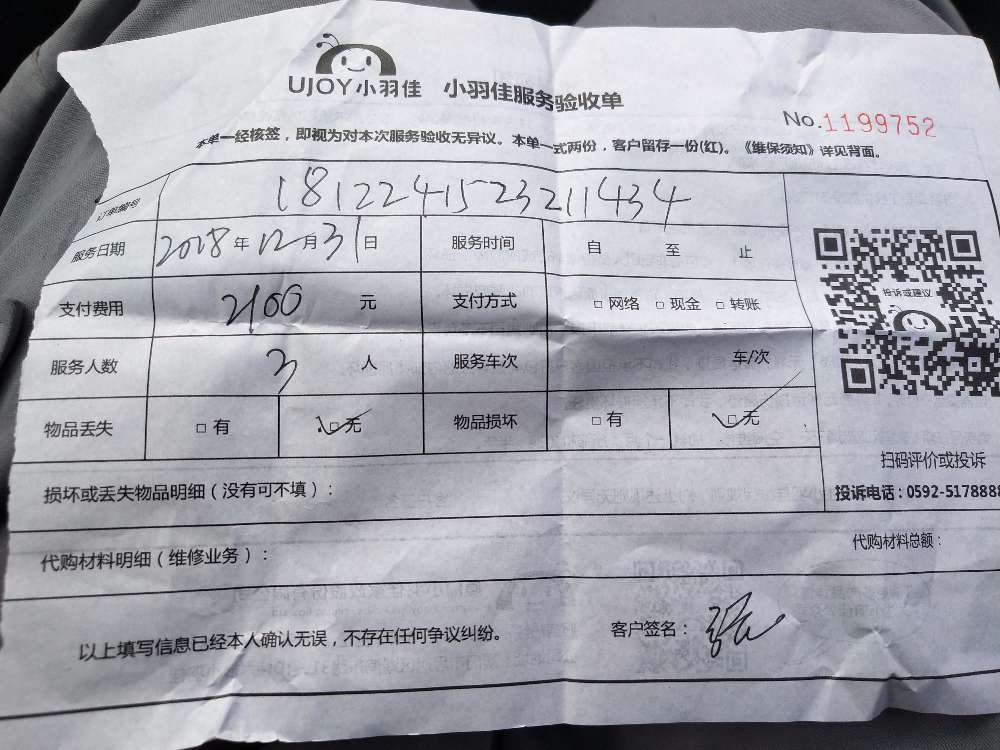 UJOY小羽佳 小羽佳服务验收单
No.1199752
本单一经核签，即视为对本次服务验收无异议。本单一式两份，客户留存一份(红)。《维保须知》详见背面。
订单编号 181224152321143​4
服务日期 2018年12月31日 服务时间 自 至 止
支付费用 2100 元 支付方式 □网络 □现金 □转账
投诉或建议
服务人数 3 人 服务车次 车/次
物品丢失 □有 ☑无 物品损坏 □有 ☑无
扫码评价或投诉
损坏或丢失物品明细（没有可不填）：
投诉电话：0592-5178888
代购材料明细（维修业务）：
代购材料总额：
以上填写信息已经本人确认无误，不存在任何争议纠纷。 客户签名：